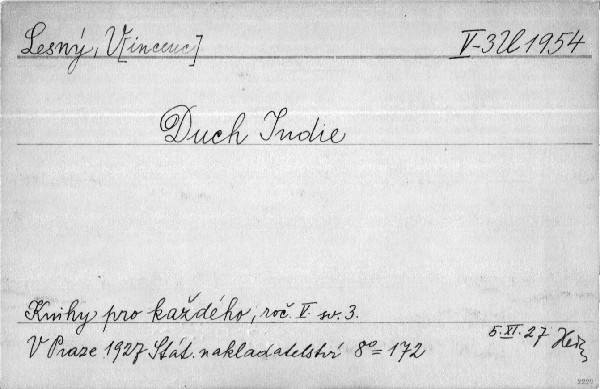 Lesný, V[incenc] V-3U1954
Duch Indie
Knihy pro každého, roč. V. sv. 3.
V Praze 1927 Stát. nakladatelství 8° = 172
5.XI.27
2220